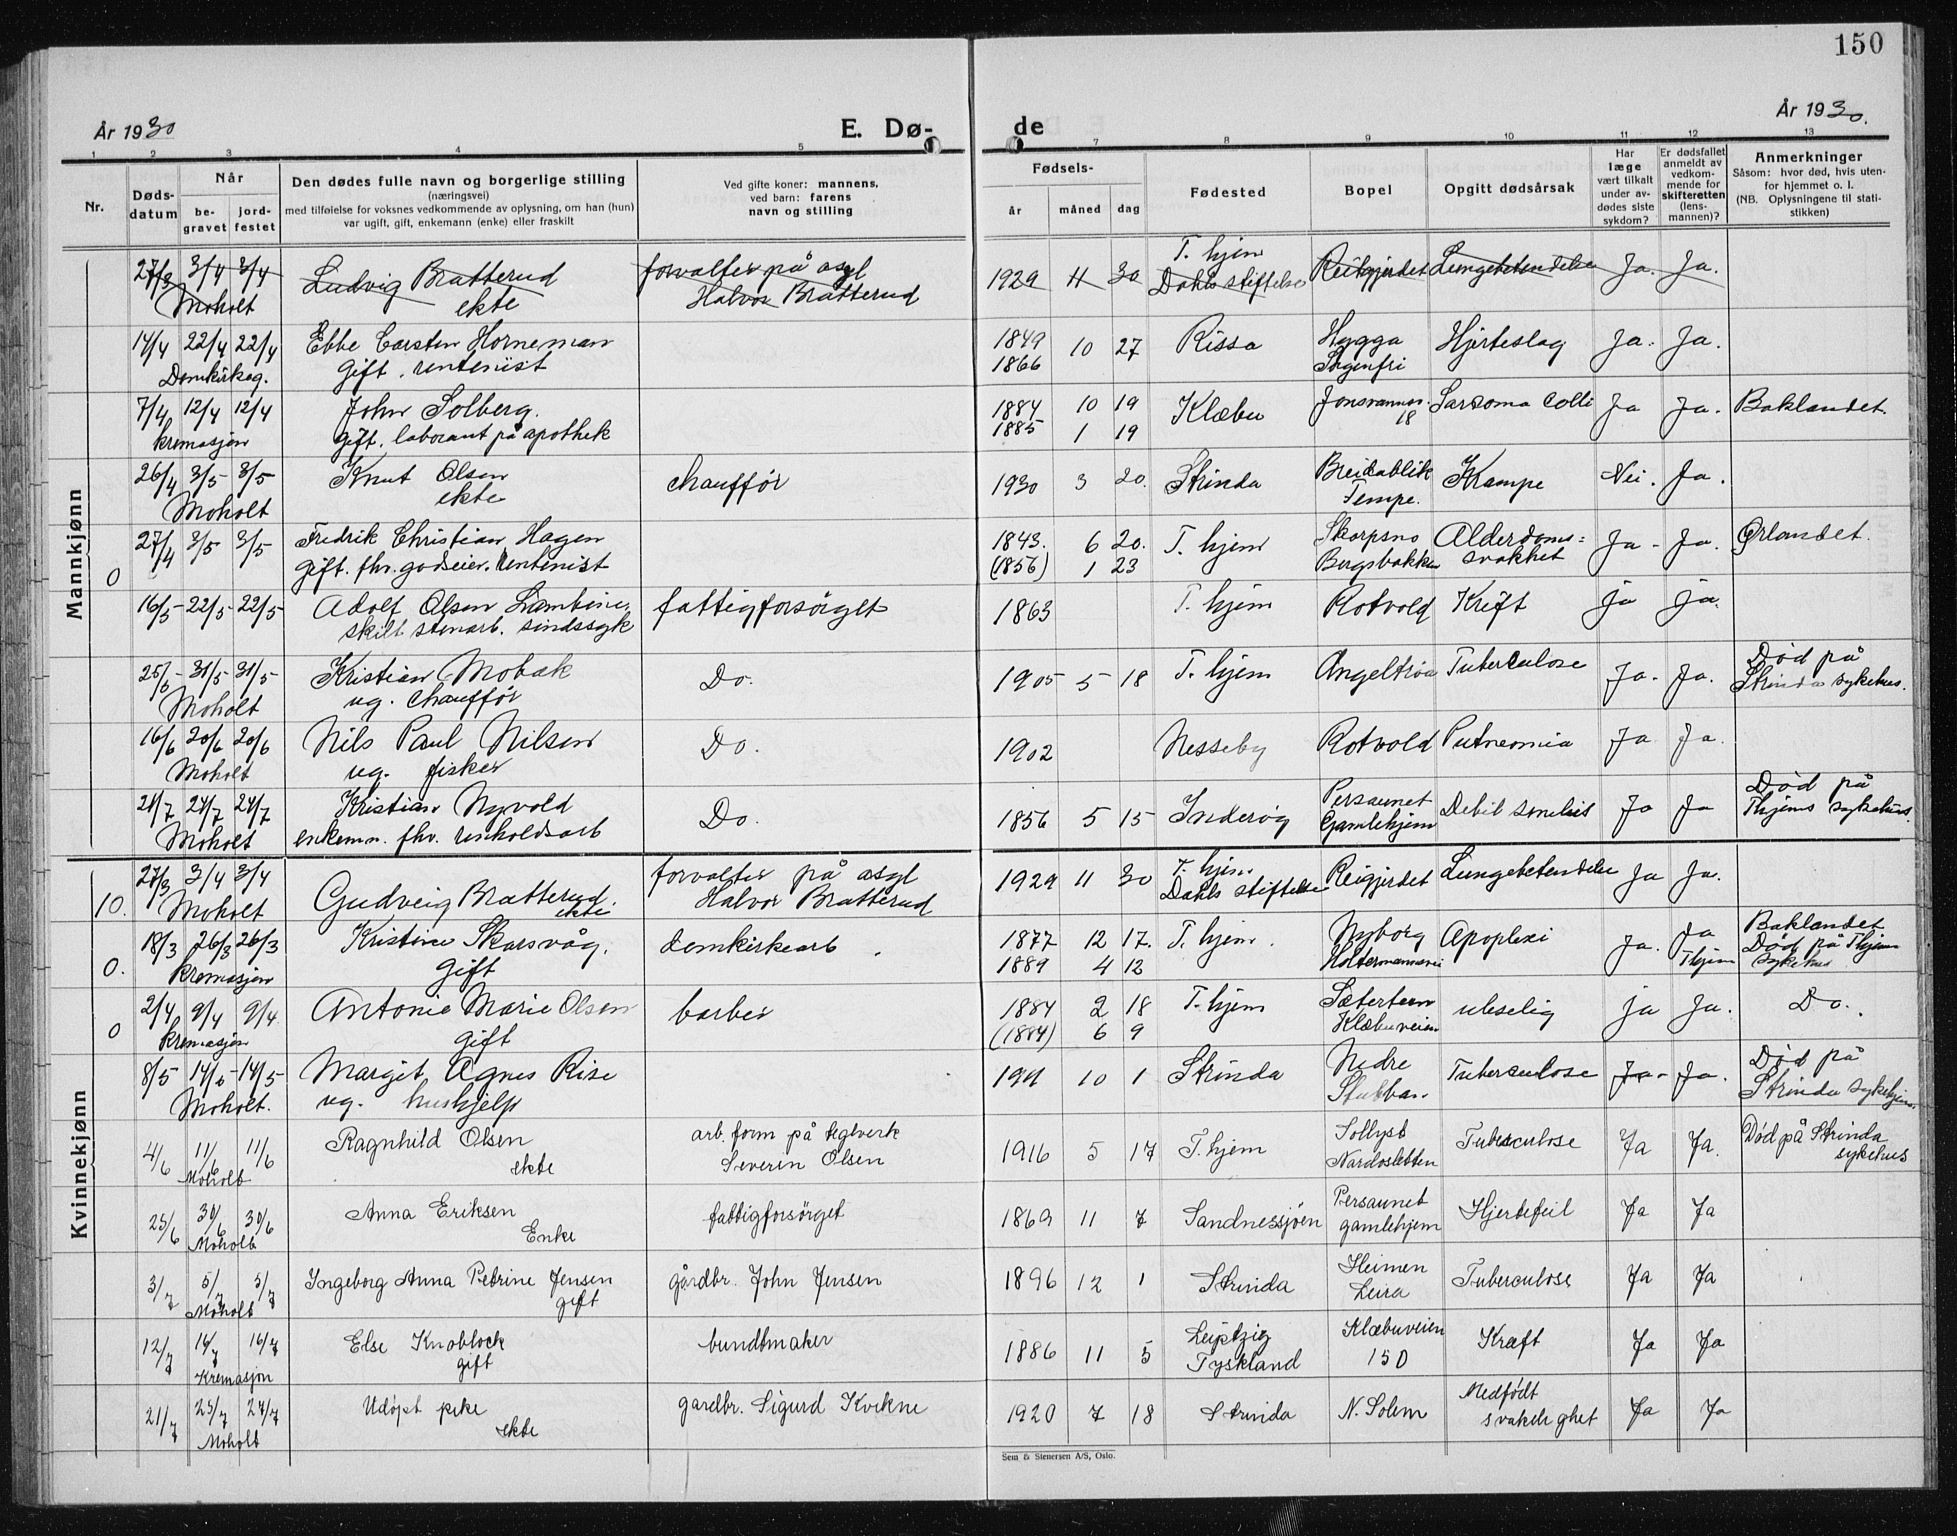 150
År 1930
E. Dø-
de
År 1930.
1 2 3 4 5 7 8 9 10 11 12 13
Nr.
Døds-
datum
Når
be-
gravet
jord-
festet
Den dødes fulle navn og borgerlige stilling
(næringsvei)
med tilføielse for voksnes vedkommende av oplysning, om han (hun)
var ugift, gift, enkemann (enke) eller fraskilt
Ved gifte koner: mannens,
ved barn: farens
navn og stilling
Fødsels-
år måned dag
Fødested
Bopel
Opgitt dødsårsak
Har
læge
vært tilkalt
under av-
dødes siste
sykdom?
Er dødsfallet
anmeldt av
vedkom-
mende for
skifteretten
(lens-
mannen)?
Anmerkninger
Såsom: hvor død, hvis uten-
for hjemmet o. l.
(NB. Oplysningene til stati-
stikken)
Mannkjønn
27/3 3/4 3/4 Ludvig Bratterud forvalter på asyl 1929 11 30 T. hjem Reikgjerdet Lungebetendelse Ja. Ja.
Moholt ekte Halvor Bratterud Dahls stiftelse
14/4 22/4 22/4 Ebbe Carsten Horneman 1849 10 27 Rissa Hygga Hjerteslag Ja. Ja.
Domkirkeg. Gift. rentenist 1866 Sorgenfri
7/4 12/4 12/4 John Solberg. 1884 10 19 Klæbu Jonsvannsv. Sarcoma Colli Ja Ja. Baklandet.
kremasjon gift. laborant på apothek 1885 1 19 18
26/4 3/5 3/5 Knut Olsen chauffør 1930 3 20. Strinda Breidablik Krampe Nei. Ja.
Moholt ekte Tempe.
27/4 3/5 3/5 Fredrik Christian Hagen 1843. 6 20. T. hjem Skorpsno Alderdoms= Ja - Ja. Ørlandet.
0 gift. fhv. godseier. rentenist (1856) 1 23 Bergsbakken svakhet
16/5 22/5 22/5 Adolf Olsen fattigforsørget 1863 T. hjem Rotvold Kreft ja ja.
skilt stenarb. sindssyk
25/5 31/5 31/5 Kristian Mobæk Do. 1905 5 18 T. hjem Angeltrøa Tuberculose Ja. Ja. Død på
Moholt ug. chauffør Strinda sykehus.
16/6 20/6 20/6 Nils Paul Nilsen Do. 1902 Nesseby Rotvold Putneomia Ja Ja.
Moholt ug. fisker
21/7 24/7 24/7 Kristian Nyvold Do. 1856 5 15 Inderøy Persaunet Debil senilis Ja Ja Død på
Moholt enkem. fhv. renholdsarb Gamlehjem Thjems sykehus.
Kvinnekjønn
27/3 3/4 3/4 Gudveig Bratterud forvalter på asyl 1929 11 30 T. hjem Reigjerdet Lungebetendelse Ja Ja.
10. Moholt ekte. Halvor Bratterud Dahls stiftelse
18/3 26/3 26/3 Kristine Skarsvåg. domkirkearb. 1877 12 17. T. hjem. Nyborg Apoplexi Ja. Ja Baklandet
0. kremasjon Gift 1889 4 12 Holtermannsvei Thjem Død på Thjem
sykehus
2/4 9/4 9/4 Antonie Marie Olsen barber 1884 2 18 T. hjem Sæterteen uleselig ja Ja. Do.
0 kremasjon gift (1884) 6 9 Klæbuveien
8/5 14/5 14/5 Margit Agnes Rise 1911 10 1 Strinda Nedre Tuberculose Ja - Ja. Død på
Moholt. ug. hushjelp Stubban Strinda sykehjem.
4/6 11/6 11/6 Ragnhild Olsen arb. form på teglverk 1916 5 17 T. hjem Sollyst Tuberculose Ja Ja. Død på Strinda
Moholt ekte Severin Olsen Nardosletten sykehus
25/6 30/6 30/6 Anna Eriksen fattigforsørget 1869 11 7 Sandnessjøen Persaunet Hjertefeil Ja Ja
Moholt Enke gamlehjem
3/7 5/7 5/7 Ingeborg Anna Petrine Jensen gårdbr. John Jensen 1896 12 1 Strinda Heimen Tuberculose Ja Ja
Moholt gift Leira
12/7 16/7 16/7 Else Knoblock bundtmaker 1886 11 5 Leipzig Klæbuveien Kræft Ja Ja
Kremasjon gift Tyskland 150
21/7 25/7 24/7 Udøpt pike gardbr. Sigurd Kvikne 1920 7 18 Strinda N. Solem Medfødt Ja Ja
Moholt ekte svakelighet
Sem & Stenersen A/S, Oslo.